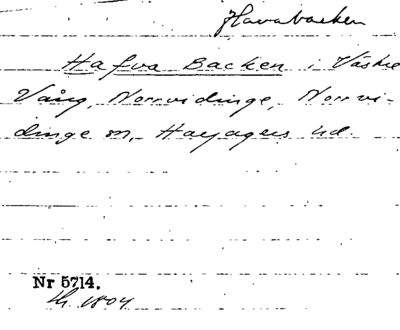 Havabacken
Hafva Backen i Västre
Vång, Norrvidinge, Norrvi-
dinge sn, Harjagers hd.
Nr 5714.
th. 1804